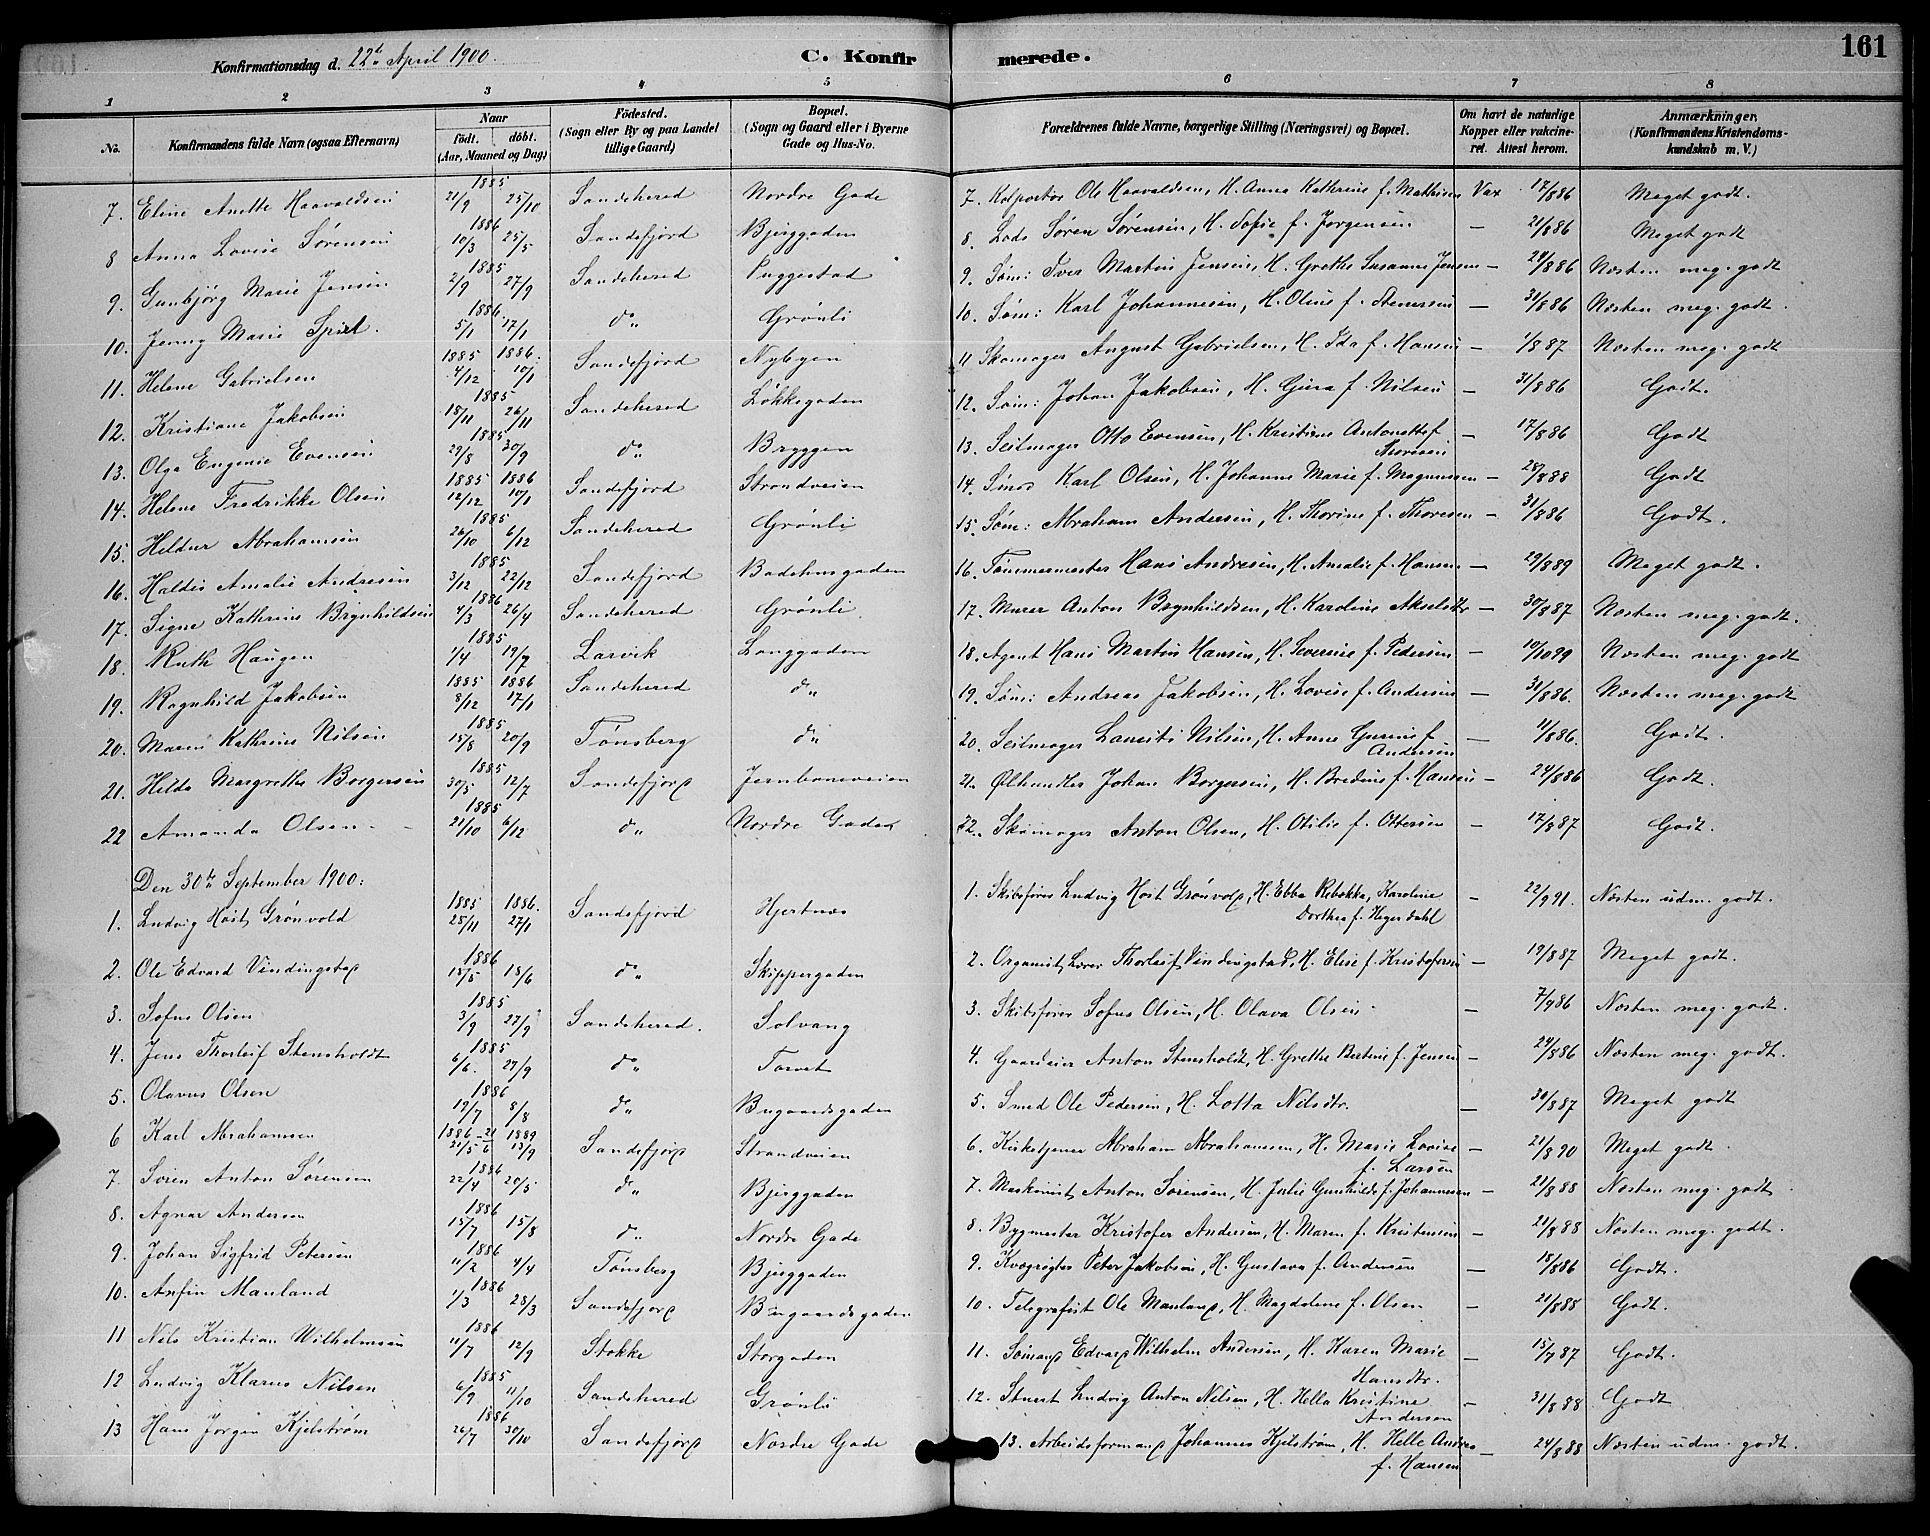 161
Konfirmationsdag d. 22de April 1900. C. Konfirmerede.
1 2 3 4 5 6 7 8
No. Konfirmandens fulde Navn (ogsaa Efternavn) Naar født. døbt. (Aar, Maaned og Dag) Fødested. (Sogn eller By og paa Landet tillige Gaard) Bopæl. (Sogn og Gaard eller i Byerne Gade og Hus-No. Forældrenes fulde Navne, borgerlige Stilling (Næringsvei) og Bopæl. Om havt de naturlige Kopper eller vakcineret. Attest herom. Anmærkninger. (Konfirmandens Kristendomskundskab m. V.)
7. Eline Anette Haavaldsen 1885 21/9 25/10 Sandeherred Nordre Gade 7. Kolportør Ole Haavaldsen, H. Anna Kathrine f. Mathisen Vax 17/8 86 Meget godt.
8 Anna Lovise Sørensen 1886 10/3 25/5 Sandefjord Bjerggaden 8. Lods Søren Sørensen, H. Sofie f. Jørgensen — 21/8 86 Meget godt
9. Gunbjørg Marie Jensen 1885 2/9 27/9 Sandeherred Puggestad 9. Søm: Iver Martin Jensen, H. Grethe Susanne Jensen — 24/8 86 Næsten meg. godt
10. Jenny Marie 1886 5/1 17/1 do Grønli 10. Søm: Karl Johannesen, H. Oline f. Stenersen — 31/8 86 Næsten meg. godt.
11. Helene Gabrielsen 1885 4/12 1886. 10/1 Sandefjord Nybyen 11 Skomager August Gabrielsen, H. Ida f. Hansen — 1/8 87 Næsten meg. godt
12. Kristiane Jakobsen 1885 18/11 26/11 Sandeherred Løkkegaden 12. Søm: Johan Jakobsen, H. Gura f. Nilsen — 31/8 86 Godt.
13. Olga Eugenie Evensen 1885 29/8 30/9 do Bryggen 13. Seilmager Otto Evensen, H. Kristine Antonette f. Thoresen — 17/8 86 Godt
14. Helene Fredrikke Olsen 1885 12/12 1886 10/1 Sandefjord Strandveien 14. Smed Karl Olsen, H. Johanne Marie f. Magnussen — 28/8 88 Godt
15. Heldur Abrahamsen 1885 26/10 6/12 Sandeherred Grønli 15. Søm: Abraham Andersen, H. Thorine f. Thoresen — 31/8 86 Godt.
16. Haldis Amalie Andresen 1885 3/12 22/12 Sandefjord Badehusgaden 16. Tømmermester Hans Andresen, H. Amalie f. Hansen — 29/8 89 Meget godt.
17. Signe Kathrine Brynhildsen 1886 4/3 26/4 Sandeherred Grønli 17. Murer Anton Brynhildsen, H. Karoline Akselsdtr — 30/8 87 Næsten meg. godt.
18. Ruth Haugen 1885 1/4 19/7 Larvik Langgaden 18. Agent Hans Martin Hansen, H. Severine f. Pedersen — 10/10 99 Næsten meg. godt
19. Ragnhild Jakobsen 1885 8/12 1886 17/1 Sandeherred do 19. Søm: Andreas Jakobsen, H. Lovise f. Andersen — 31/8 86. Næsten meg. godt
20. Maren Kathrine Nilsen 1885 15/8 20/9 Tønsberg do 20. Seilmager Lauritz Nilsen, H. Anne Gurine f. Andersen — 11/8 86. Godt.
21. Hilda Margrethe Borgersen 1885 30/5 12/7 Sandefjord Jernbaneveien 21. Ølhandler Johan Borgersen, H. Bredine f. Hansen — 24/8 86 Godt.
22 Amanda Olsen 1885 21/10 6/12 do Nordre Gade 22. Skomager Anton Olsen, H. Otilie f. Ottersen — 17/8 87 Godt.
Den 30te September 1900:
1. Ludvig Høst Grønvold 1885 25/11 1886. 27/1 Sandefjord Hjertnæs 1. Skibsfører Ludvig Høst Grønvold, H. Ebba Rebekka, Karoline Dorthea f. Heyerdahl — 22/9 91. Næsten udm. godt.
2. Ole Edvard Vindingstad 1886 15/5 18/6 do Skippergaden 2. Organist, Lærer Thorleif Vindingstad, H. Elise f. Kristofersen — 19/8 87 Meget godt.
3. Sofus Olsen 1885 3/9 27/9 Sandeherred. Solvang 3. Skibsfører Sofus Olsen, H. Olava Olsen — 7/9 86 Næsten meg. godt.
4. Jens Thorleif Stensholdt 1885 6/6. 27/9 do Torvet 4. Gaardeier Anton Stensholdt, H. Grethe Bertine f. Jensen — 24/8 86 Næsten meg. godt.
5. Olavus Olsen 1886 19/7 8/8 do Bugaardsgaden 5. Smed Ole Pedersen, H. Lotta Nilsdtr. — 30/8 87 Meget godt
6 Karl Abrahamsen 1886 21/5 21/6 1889 13/9 Sandefjord Strandveien 6. Kirketjener Abraham Abrahamsen, H. Marie Lovise f. Larsen — 21/8 90 Meget godt.
7. Søren Anton Sørensen 1886 22/4 20/5 do Bjerggaden 7. Maskinist Anton Sørensen, H. Julie Gunhilde f. Johannesen — 21/8 88 Næsten meg. godt
8. Agnar Andersen 1886 15/7 15/8 do Nordre Gade 8. Bygmester Kristofer Andersen, H. Maren f. Kristensen — 21/8 88 Næsten meg. godt.
9. Johan Sigfrid Petersen 1886 11/2 4/4 Tønsberg Bjerggaden 9. Kvægrigter Peter Jakobsen, H. Gustava f. Andersen — 18/8 86 Godt.
10. Anfin Mauland 1886 1/3 28/3 Sandefjord Bugaardsgaden 10. Telegrafist Ole Mauland, H. Magdalene f. Olsen — 21/8 88 Godt.
11 Nils Kristian Wilhelmsen 1886 11/7 12/9 Stokke Storgaden 11. Sømand Edvard Wilhelm Andersen, H. Karen Marie Hansdtr. — 15/7 87 Godt.
12 Ludvig Klarus Nilsen 1885 6/9 11/10 Sandeherred Grønli 12. Stuert Ludvig Anton Nilsen, H. Hella Kristine Andersen — 31/8 88 Godt
13 Hans Jørgen Kjelstrøm 1886 26/7 30/10 Sandefjord Nordre Gade 13. Arbeidsformand Johannes Kjelstrøm, H. Helle Andrea f. Hansen — 24/8 88 Næsten udm. godt.